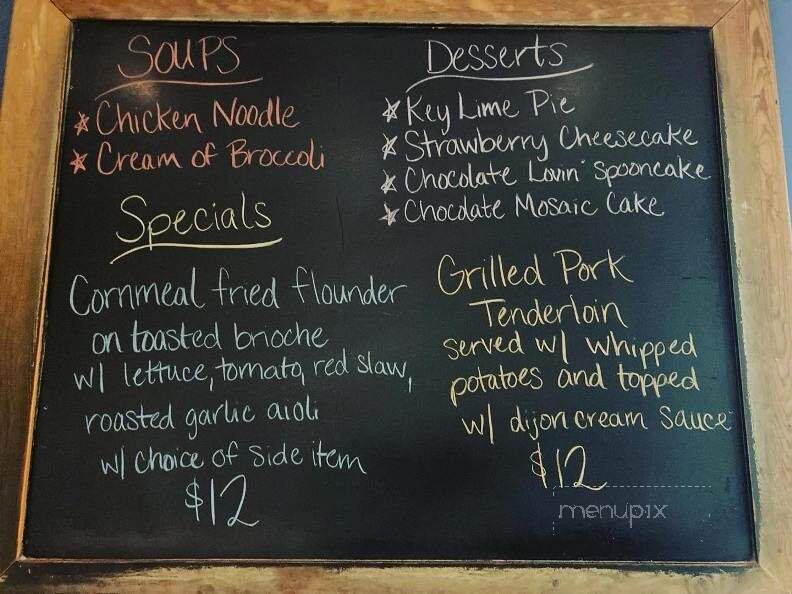 Soups
* Chicken Noodle
* Cream of Broccoli
Desserts
* Key Lime Pie
* Strawberry Cheesecake
* Chocolate Lovin' Spooncake
* Chocolate Mosaic Cake
Specials
Cornmeal fried flounder
on toasted brioche
w/ lettuce, tomato, red slaw,
roasted garlic aioli
w/ choice of side item
$12
Grilled Pork
Tenderloin
served w/ whipped
potatoes and topped
w/ dijon cream sauce
$12
menupix